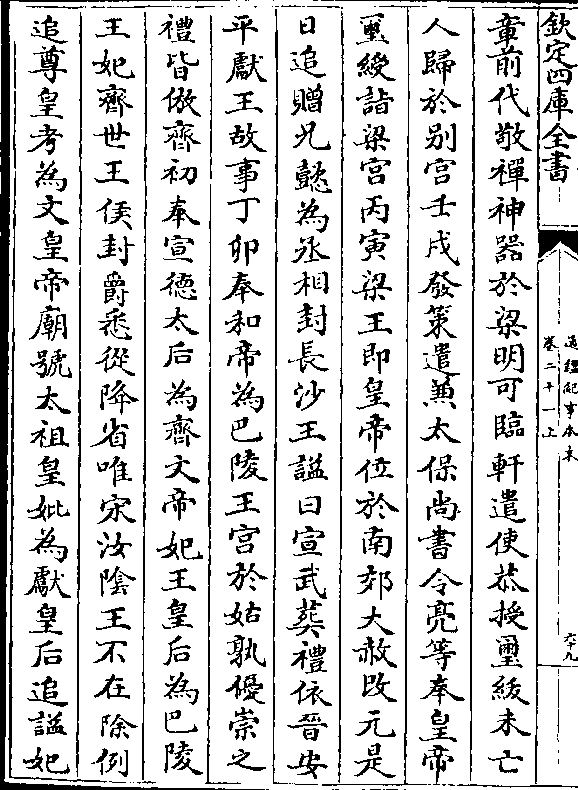 欽定四庫全書
通鑑紀事本末
卷二十一上
六十九
章前代敬禪神器於梁明可臨軒遣使恭授璽紱未亡
人歸於别宫壬戌發策遣兼太保尚書令亮等奉皇帝
璽綬詣梁宫丙寅梁王即皇帝位於南郊大赦改元是
日追贈兄懿為丞相封長沙王諡曰宣武葬禮依晉安
平獻王故事丁卯奉和帝為巴陵王宫於姑孰優崇之
禮皆倣齊初奉宣德太后為齊文帝妃王皇后為巴陵
王妃齊世王侯封爵悉從降省唯宋汝陰王不在除例
追尊皇考為文皇帝廟號太祖皇妣為獻皇后追諡妃